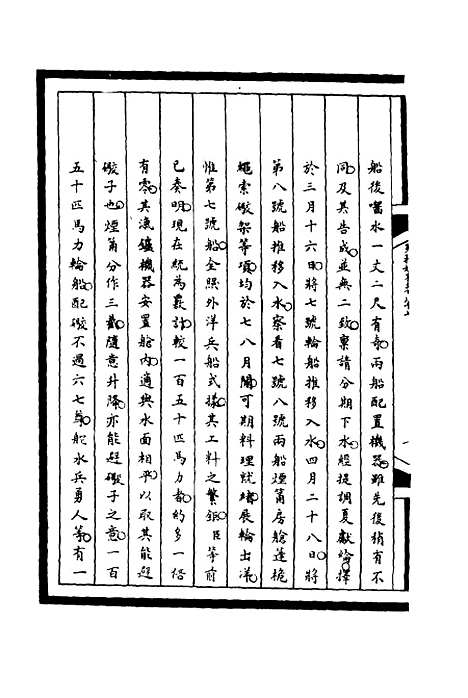 船後噹水一丈二尺有奇兩船配置機器雖先後稍有不
同及其告成並無二致稟請分期下水經提調夏獻綸擇
於三月十六日將七號輪船推移入水四月二十八日將
第八號船推移入水察看七號八號兩船煙筩房艙蓬桅
繩索礮架等項均於七八月間可期料理就緒展輪出洋
惟第七號船全照外洋兵船式樣其工料之繁鉅臣等前
已奏明現在統為覈計較一百五十匹馬力者約多一倍
有零其漁鑪機器安置艙內適與水面相平以取其能避
礮子也煙筩分作三截隨意升降亦能避礮子之意一百
五十匹馬力輪船配礮不過六七尊舵水兵勇人等有一